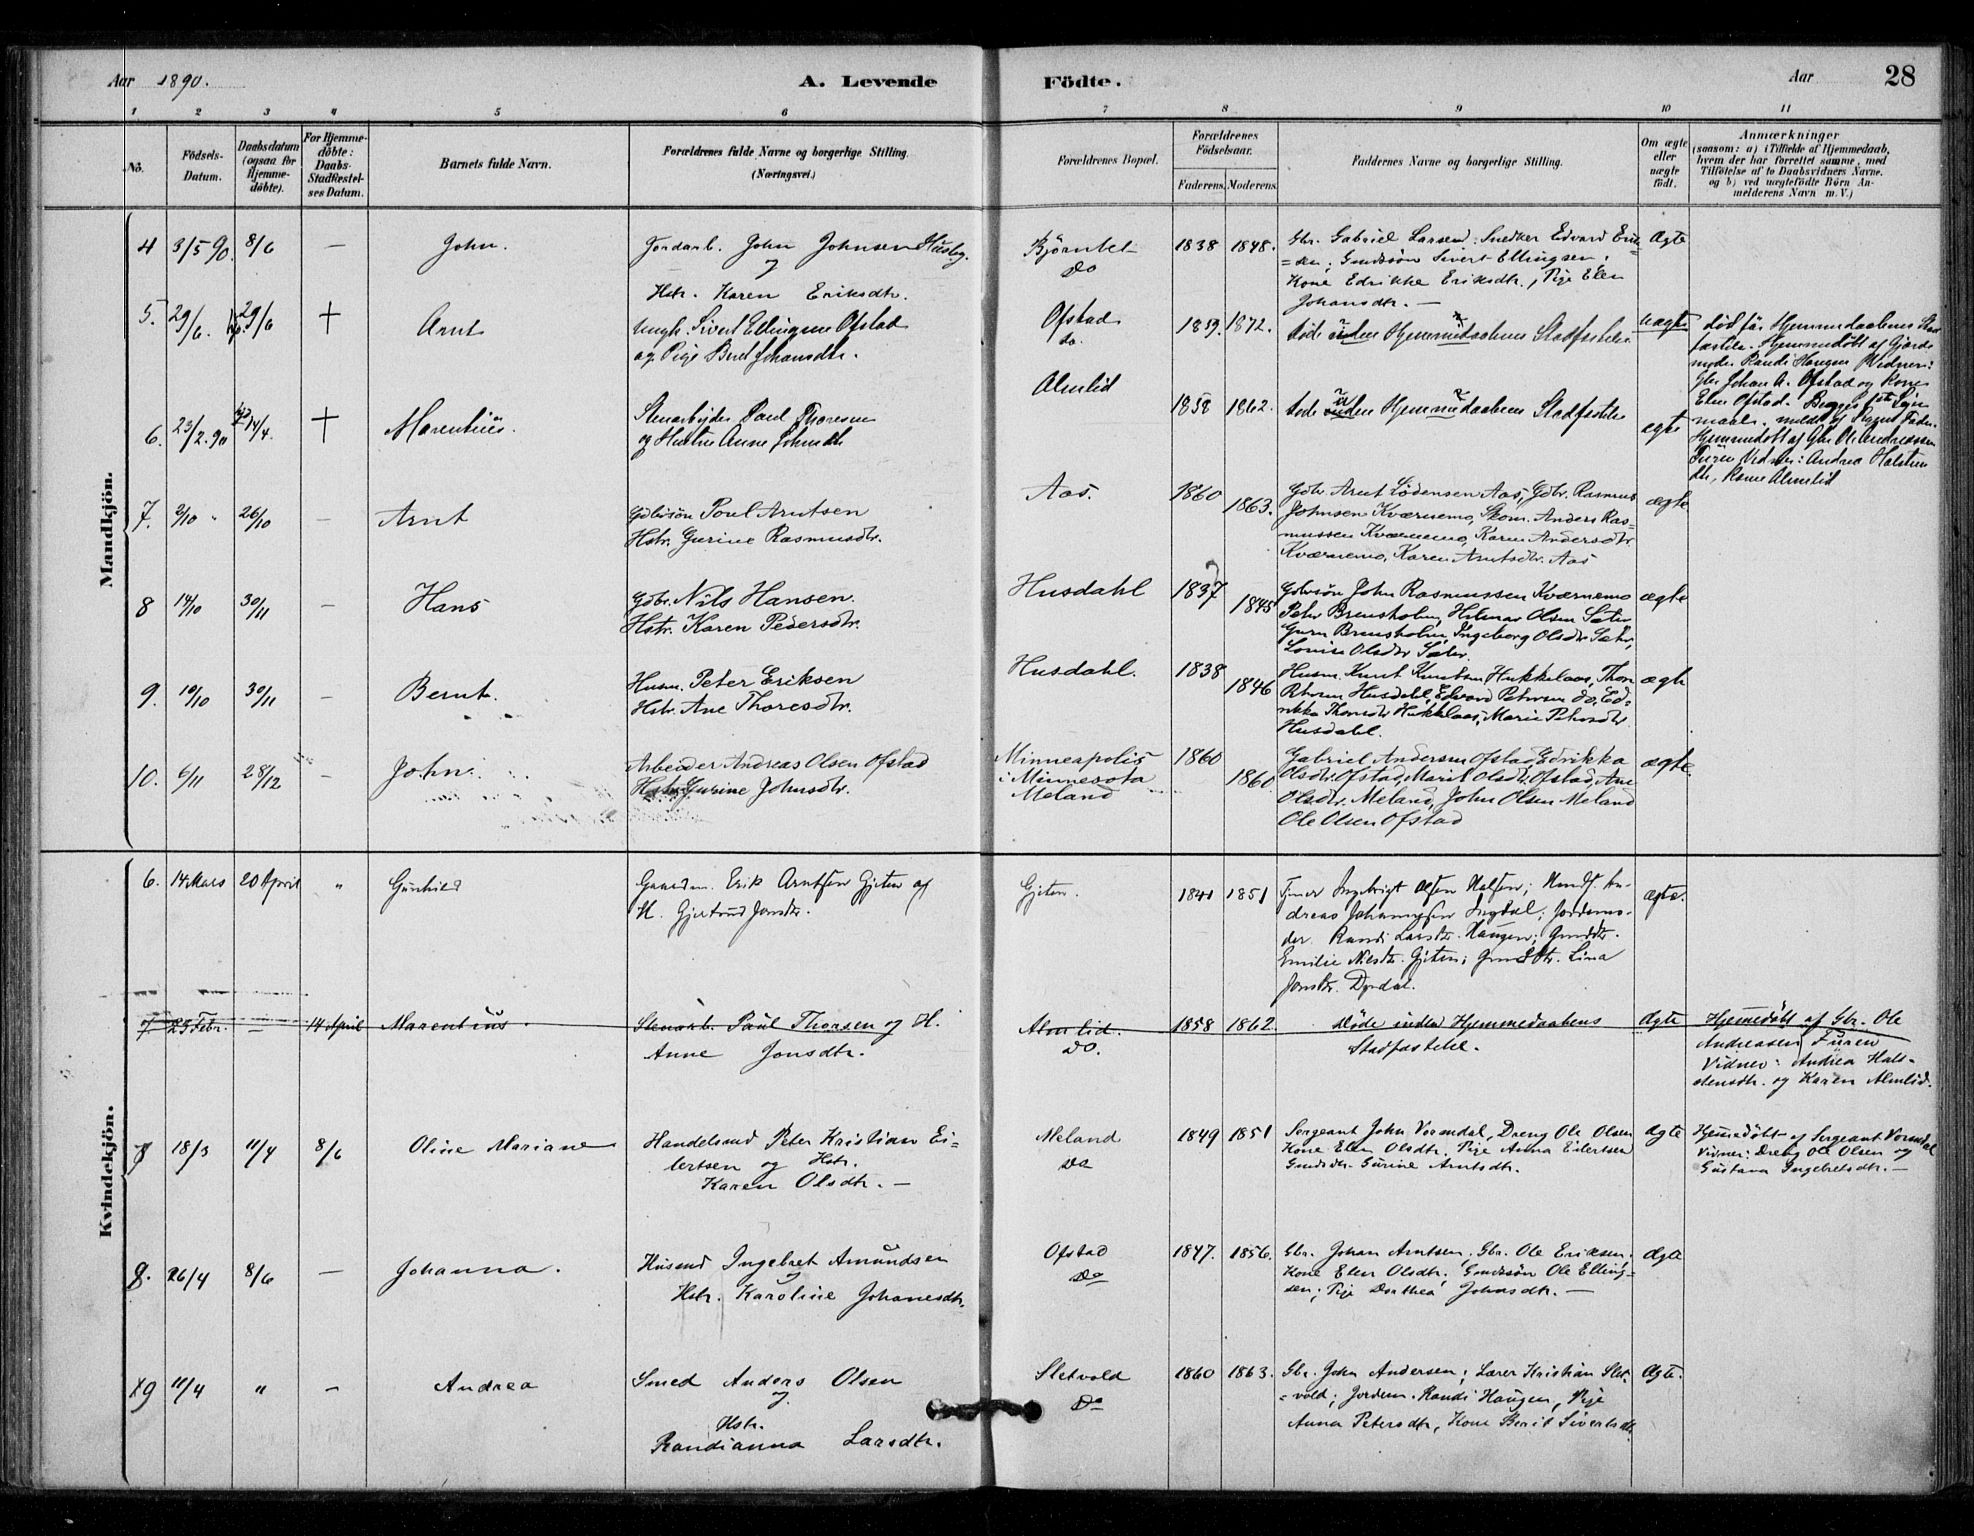 Aar 1890.
A. Levende
Födte.
Aar
28
1 2 3 4 5 6 7 8 9 10 11
No.
Födsels-
Datum.
Daabsdatum
(ogsaa for
Hjemme-
döbte).
For Hjemme-
döbte:
Daabs-
Stadfæstel-
ses Datum.
Barnets fulde Navn.
Forældrenes fulde Navne og borgerlige Stilling.
(Næringsvei.)
Forældrenes Bopæl.
Forældrenes
Födselsaar.
Faderens. Moderens.
Faddernes Navne og borgerlige Stilling.
Om ægte
eller
uægte
födt.
Anmærkninger
(saasom: a) i Tilfælde af Hjemmedaab,
hvem der har forrettet samme, med
Tilföielse af to Daabsvidners Navne.
og b) ved uægtefödte Börn An-
melderens Navn m. V.)
Mandkjön.
4 3/5 90. 8/6 — John. Jordarb. John Johnsen Husby.
og
Hstr. Karen Eriksdtr.
Do
1838 1848. Gbr. Gabriel Larsen; Snedker Edvard Erik-
=sen; Gmdssön Sivert Ellingsen;
Kone Edrikke Eriksdtr., Pige Elen
Johansdtr. —
Ægte
5. 29/6. 29/6 † Arnt Ungk. Sivert Ellingsen Ofstad
og Pige Berit Johansdtr.
Ofstad
do.
1859. 1872. døde inden Hjemmedaabens Stadfæstelse
uægte
død før Hjemmedaabens Stad
fæstelse. Hjemmedøbt af Gjorde
moder Randi Haugen Vidner:
Gbr Johan A. Ofstad og Kone
Elen Ofstad. Begges 1ste Leier
maal. meldt af Barnets Fader.
6. 23/2.90 14/4. † Marentius. Stenarbeider Paul Thoresen
og Hustru Anne Johnsdtr
Almlid
1858 1862. døde inden Hjemmedaabens Stadfæstelse
ægte
Hjemmedøbt af Gbr Ole Andreassen
Furen Vidner: Andrea Halsten
dtr, Karen Almlid
7. 2/10 26/10 — Arnt Gdbrsön Poul Arntsen
Hstr. Gurine Rasmusdtr.
Aas.
1860 1863. Gdbr. Arnt Lødensen Aas, Gdbr. Rasmus
Johnsen Kværnemo, Skom. Anders Ras-
mussen Kværnemo, Karen Andersdtr.
Kværnemo, Karen Arntsdtr. Aas
ægte
8 14/10 30/11 — Hans Gdbr. Nils Hansen.
Hstr. Karen Pedersdtr.
Husdahl 1837 1845 Gdbrsön John Rasmussen Kværnemo
Peter Brensholm, Hilmar Olsen Sæter
Guru Brensholm, Ingeborg Olsdtr Sæter,
Lovise Olsdtr Sæter.
ægte
9. 10/10 30/11 — Bernt. Husm. Peter Eriksen
Hstr. Ane Thoresdtr.
Husdahl. 1838 1846 Husm. Knut Knutsen Hukkelaas, Thor
Petersen Husdahl, Edvard Petersen do, Ed-
rikka Thorsdtr Hukkelaas, Marie Petersdtr
Husdahl.
ægte
10. 6/11 28/12 — John. Arbeider Andreas Olsen Ofstad
Hstr. Gurine Johnsdtr.
Minneapolis
i Minnesota
Meland
1860 1860 Gabriel Andersen Ofstad, Edrikka
Olsdtr. Ofstad, Marit Olsdtr. Ofstad, Ane
Olsdtr. Meland, John Olsen Meland
Ole Olsen Ofstad
ægte.
Kvindekjön.
6. 14 Mars 20 April " Gunhild Gaardm. Erik Arntsen Gjeten og
H. Gjertrud Jonsdtr.
Gjeten. 1841 1851 Ingebrigt Olsen Halsen; Handf. An-
dreas Johannessen Ingdal; Jordemo-
der Randi Larsdtr. Haugen; Gmdsdtr.
Emilie Nilsdtr. Gjeten; Gmdsdtr. Lina
Jonsdtr. Dyrdal.
Ægte.
7. 23 Febr. — 14 April Marentius. Stenarb. Paul Thorsen og H.
Anne Jonsdtr.
Almlid.
Do.
1858 1862. døde inden Hjemmedaabens
Stadfæstelse.
Ægte
Hjemmedøbt af Gbr. Ole
Andreasen Furen
Vidner: Andrea Hals-
densdtr. og Karen Almlid.
7 18/3 11/4 8/6 Oline Mariane Handelsmd Peter Kristian Ei-
lertsen og Hstr.
Karen Olsdtr. —
Meland
Do
1849 1851 Sergeant John Vormdal, Dreng Ole Olsen
Kone Elen Olsdtr. Pige Anna Eilertsen
Gmdsdtr. Gurine Arntsdtr.
Ægte
Hjemmedøbt af Sergeant Vormdal
Vidner: Dreng Ole Olsen og
Gustava Ingebretsdtr. —
8. 26/4 8/6 — Johanna. Husmd Ingebret Amundsen
og
Hstr. Karoline Johanesdtr.
Ofstad
Do
1847. 1856. Gbr. Johan Arntsen, Gbr. Ole Eriksen,
Kone Elen Olsdtr, Gmdssön Ole Elling-
sen; Pige Dorthea Johnsdtr. —
Ægte
9 11/4 " — Andrea Smed Anders Olsen
og
Hstr.
Randianna Larsdtr.
Sletvold
Do
1860 1863. Gbr. John Andersen; Lærer Kristian Slet-
=vold; Jordem. Randi Haugen, Pige
Anna Petersdtr, Kone Berit Sivertsdtr.
Ægte.